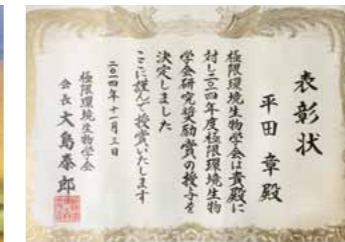 表彰状
平田 章 殿
極限環境生物学会は貴殿に
対し二〇一四年度極限環境生物
学会研究奨励賞の授与を
決定しました
ここに謹んで授賞いたします
二〇一四年十一月三日
極限環境生物学会
会長 大島泰郎